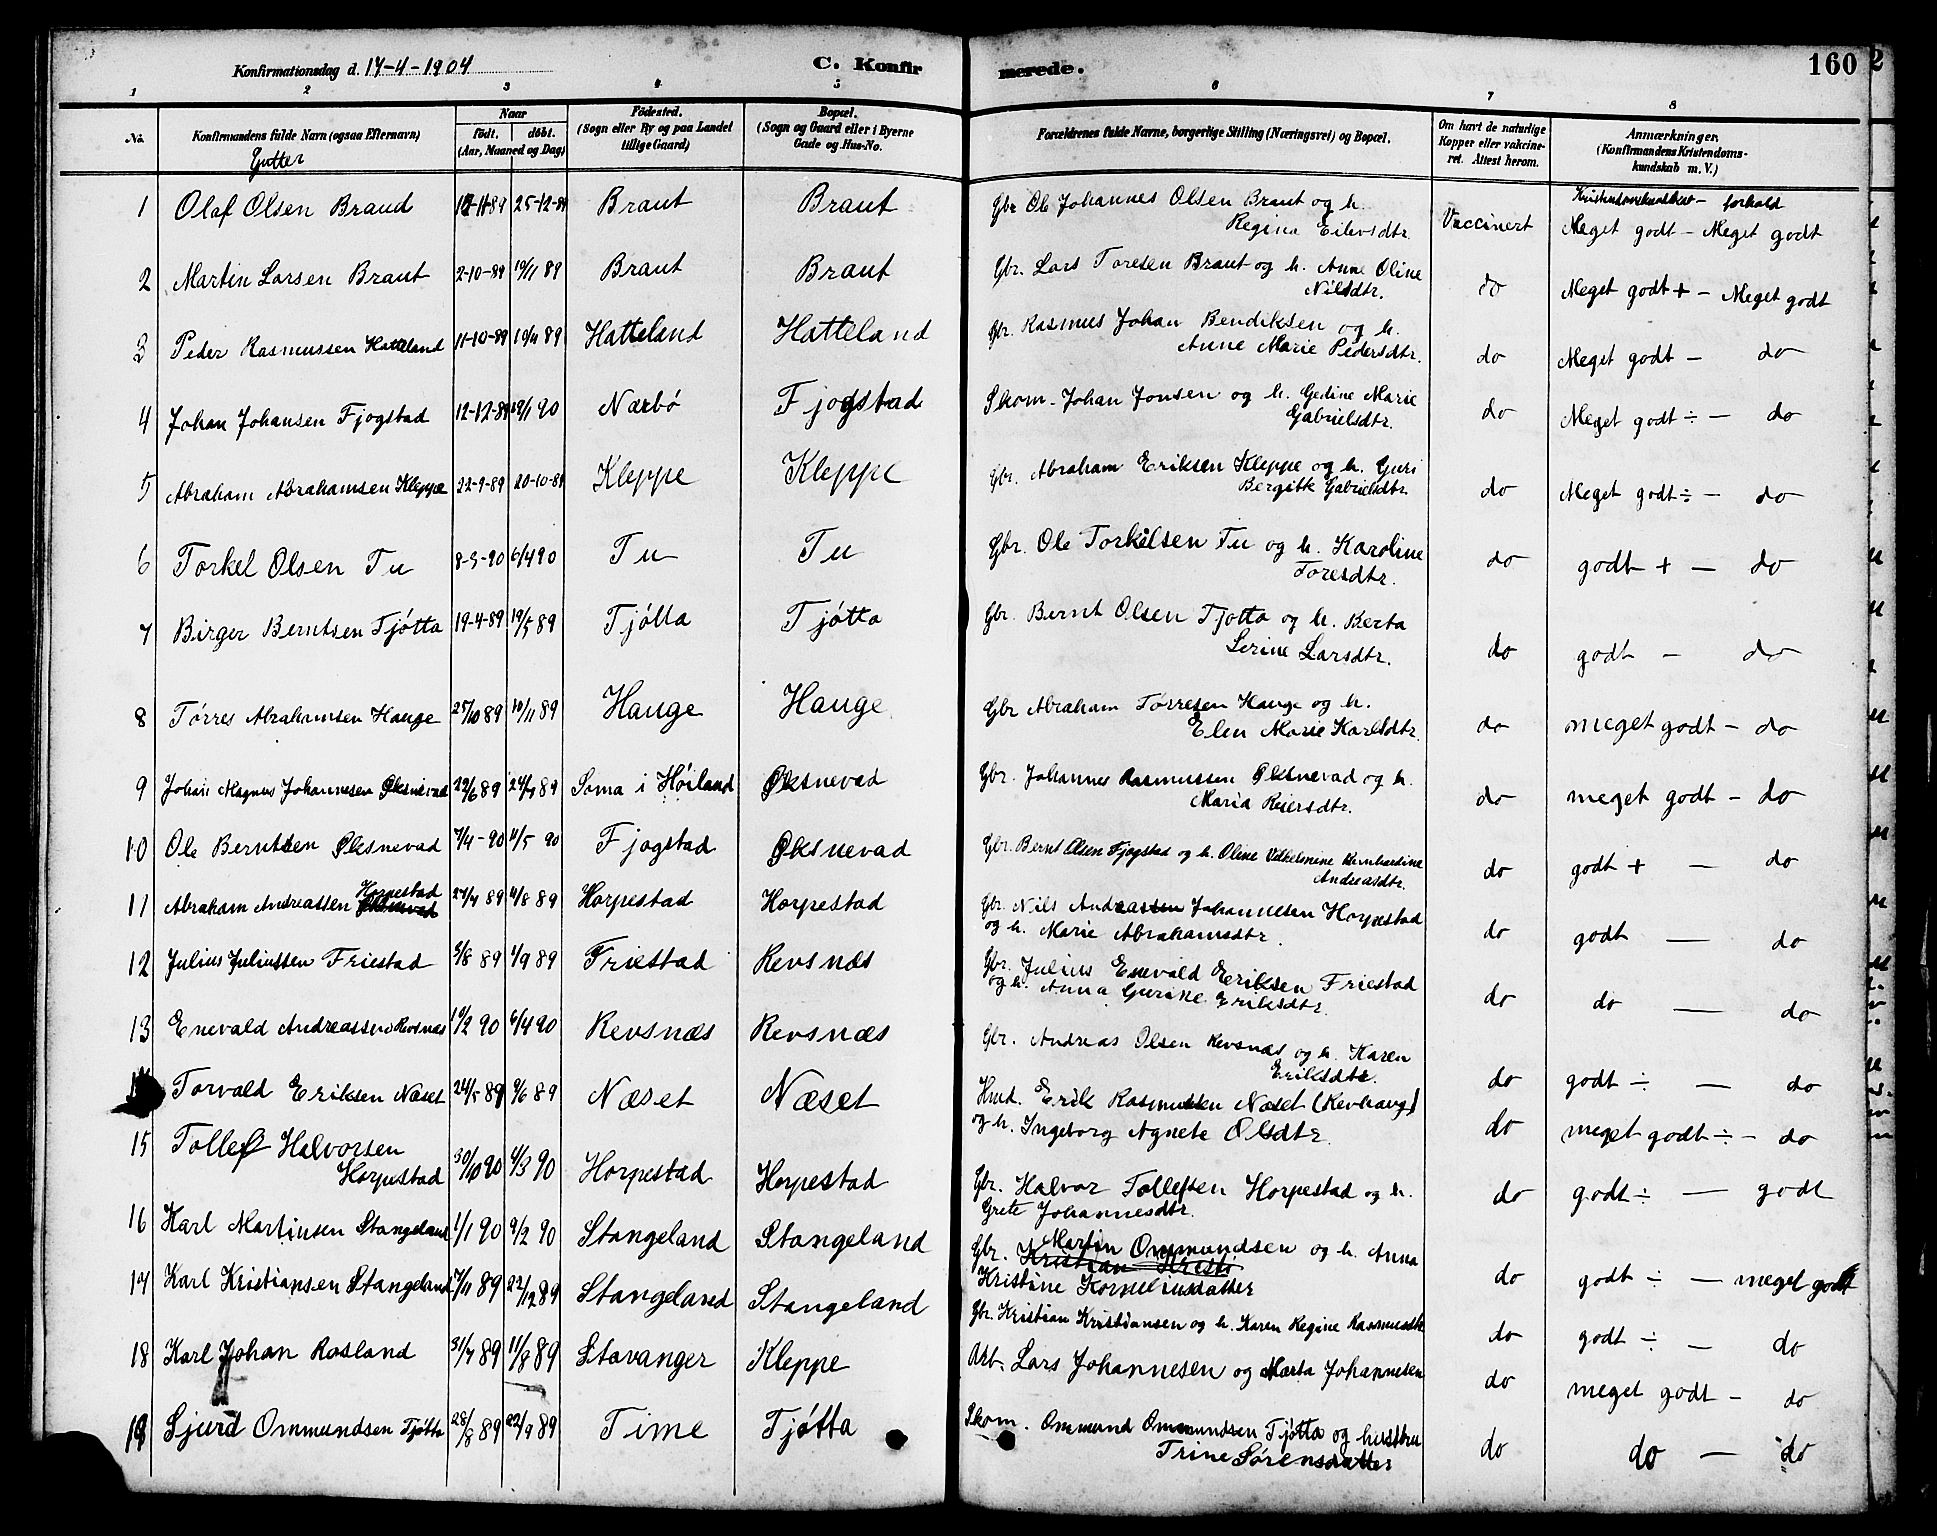 Konfirmationsdag d. 17-4-1904 C. Konfirmerede. 160
1 2 3 4 5 6 7 8
No. Konfirmandens fulde Navn (ogsaa Efternavn) Naar født. døbt. (Aar, Maaned og Dag) Fødested. (Sogn eller By og paa Landet tillige Gaard) Bopæl. (Sogn og Gaard eller i Byerne Gade og Hus-No. Forældrenes fulde Navne, borgerlige Stilling (Næringsvei) og Bopæl. Om havt de naturlige Kopper eller vakcineret. Attest herom. Anmærkninger. (Konfirmandens Kristendomskundskab m. V.)
Gutter
forhold
1 Olaf Olsen Braud 25-12-89 Braut Braut Gbr Ole Johannes Olsen Braut og h. Regina Eilevsdtr. Vaccinert Meget godt - Meget godt
2 Martin Larsen Braut 2-10-89 10/11 89 Braut Braut Gbr. Lars Toresen Braut og h. Anne Oline Nilsdtr. do Meget godt + - Meget godt
3 Peder Rasmussen Hatteland 11-10-89 10/11 89 Hatteland Hatteland Gbr. Rasmus Johan Bendiksen og h. Anne Marie Pedersdtr. do Meget godt - do
4 Johan Johansen Fjogstad 12-12-89 19/1 90 Nærbø Fjogstad Skom. Johan Jonsen og h. Gedine Marie Gabrielsdtr. do Meget godt ÷ - do
5 Abraham Abrahamsen Kleppe 22-9-89 20-10-89 Kleppe Kleppe Gbr. Abraham Eriksen Kleppe og h. Guri Bergitte Gabrielsdtr. do Meget godt ÷ - do
6 Torkel Olsen Tu 8-3-90 6/4 90 Tu Tu Gbr. Ole Torkelsen Tu og h. Karoline Toresdtr. do godt + - do
7 Birger Berntsen Tjøtta 19-4-89 19/5 89 Tjøtta Tjøtta Gbr. Bernt Olsen Tjøtta og h. Berta Serine Larsdtr. do godt - do
8 Tørres Abrahamsen Hauge 25/10 89 10/11 89 Hauge Hauge Gbr Abraham Tørresen Hauge og h. Elen Marie Karlsdtr. do meget godt - do
9 Johan Magnus Johannesen Øksnevad 22/6 89 24/7 89 Soma i Høiland Øksnevad Gbr. Johannes Rasmussen Øksnevad og h. Maria Reiersdtr. do meget godt - do
10 Ole Berntsen Øksnevad 7/4 - 90 11/5 90 Fjogstad Øksnevad Gbr. Bernt Olsen Fjogstad og h. Oline Vilhelmine Bernhardine Andreasdtr. do godt + - do
11 Abraham Andreassen Horpestad 27/7 89 11/8 89 Horpestad Horpestad Gbr. Nils Andreassen Johannesen Horpestad og h. Marie Abrahamsdtr. do godt - do
12 Julius Juliussen Friestad 5/8 89 1/9 89 Friestad Revsnæs Gbr. Julius Enevald Eriksen Friestad og h. Anna Gurine Eriksdtr. do do - do
13 Enevald Andreassen Revsnæs 10/2 90 6/4 90 Revsnæs Revsnæs Gbr. Andreas Olsen Revsnæs og h. Karen Eriksdtr. do godt ÷ - do
14 Torvald Eriksen Næset 24/5 89 9/6 89 Næset Næset Hmd. Erik Rasmussen Næset (Revhaug) og h. Ingeborg Agnete Olsdtr. do meget godt ÷ - do
15 Tollef Halvorsen Horpestad 30/10 90 4/3 90 Horpestad Horpestad Gbr. Halvor Tollefsen Horpestad og h. Grete Johannesdtr. do godt ÷ - godt
16 Karl Martinsen Stangeland 1/1 90 9/2 90 Stangeland Stangeland Gbr. Martin Ommundsen og h. Anna Kristine Korneliusdatter do godt ÷ - meget godt
17 Karl Kristiansen Stangeland 7/11 89 22/12 89 Stangeland Stangeland Gbr. Kristian Kristiansen og h. Karen Regine Rasmusdtr do godt ÷ - do
18 Karl Johan Rosland 31/7 89 11/8 89 Stavanger Kleppe Arb. Lars Johannesen og Marta Johannesen do meget godt - do
19 Sjurd Ommundsen Tjøtta 28/8 89 22/9 89 Time Tjøtta Skom. Ommund Ommundsen Tjøtta og hustru Trine Sørensdatter do do - do